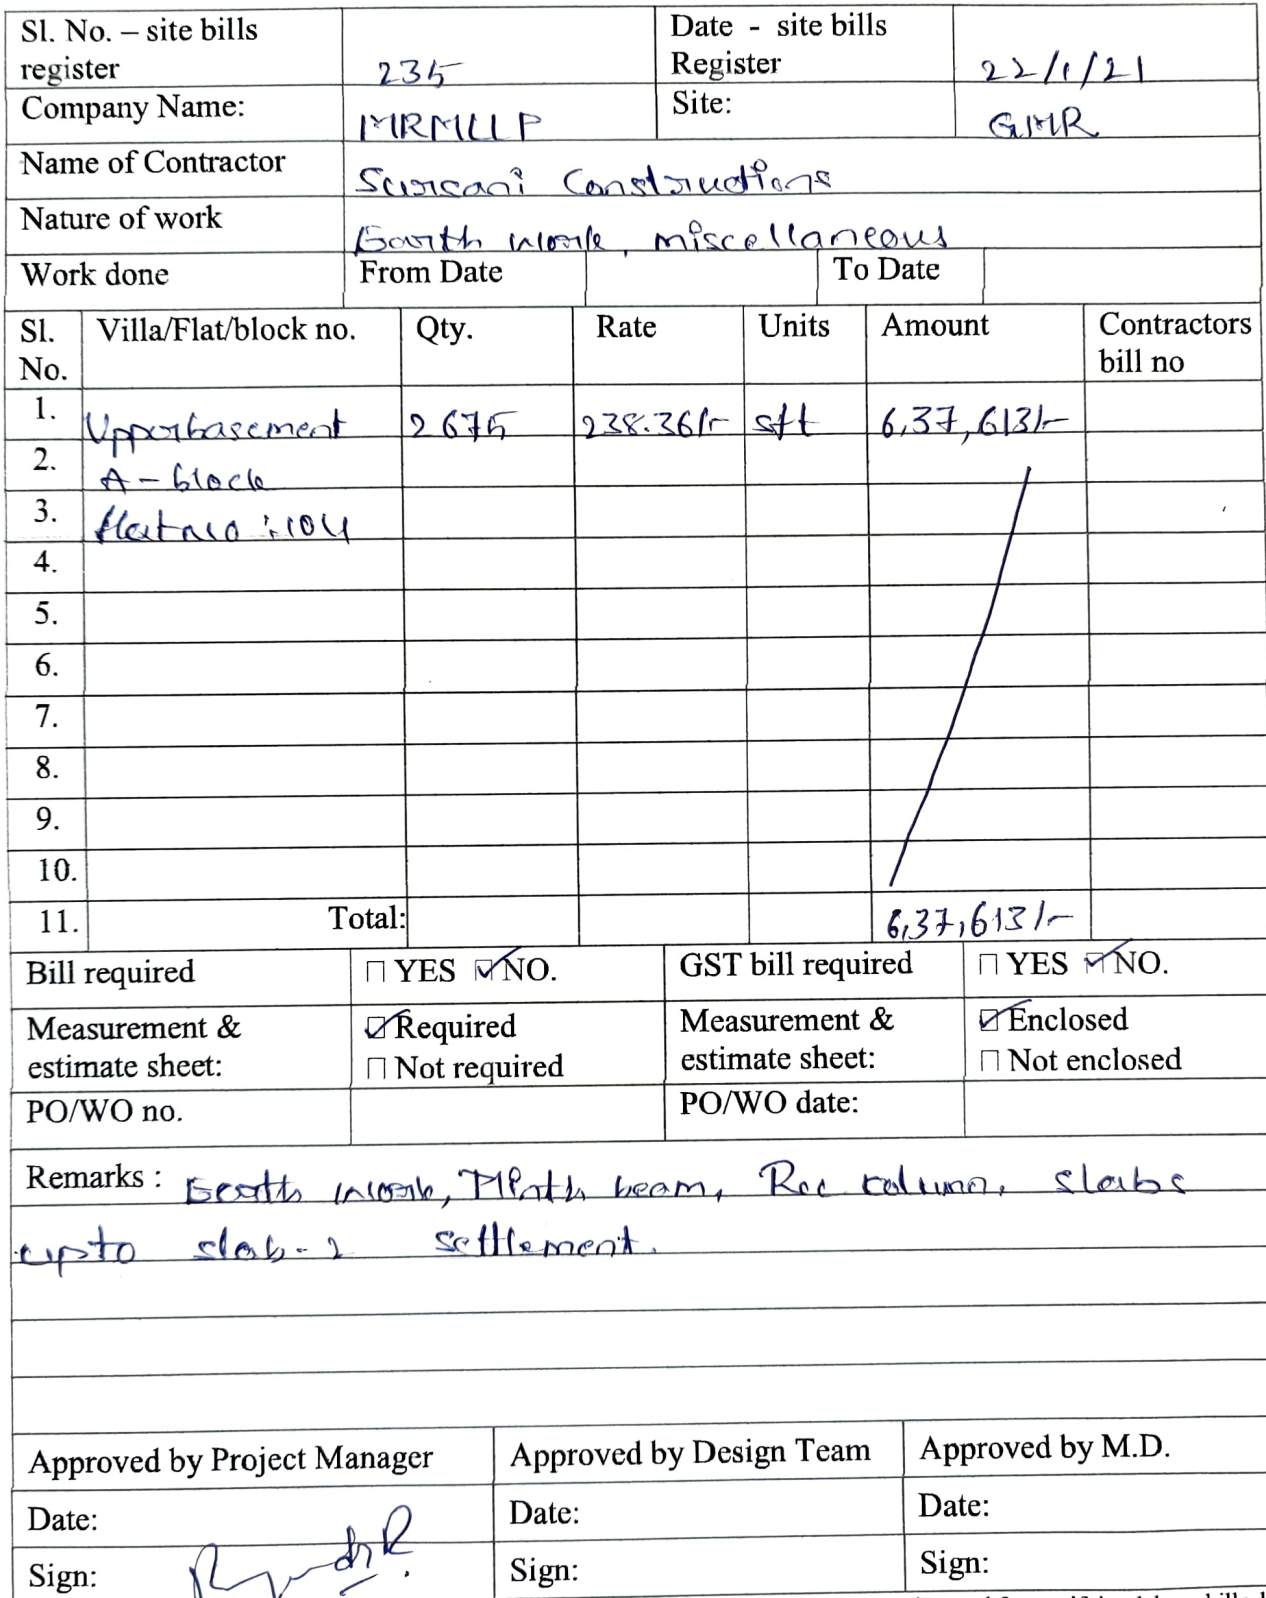 Sl. No. – site bills register 235 Date - site bills Register 22/1/21
Company Name: MRMLLP Site: GMR
Name of Contractor Constructions
Nature of work Earth work, miscellaneous
Work done From Date To Date
Sl. No. Villa/Flat/block no. Qty. Rate Units Amount Contractors bill no
1. Upperbasement 2675 238.36/- sft 6,37,613/-
2. A - block
3. flat no : 104
4.
5.
6.
7.
8.
9.
10.
11. Total: 6,37,613/-
Bill required YES NO. GST bill required YES NO.
Measurement & estimate sheet: Required Not required Measurement & estimate sheet: Enclosed Not enclosed
PO/WO no. PO/WO date:
Remarks : Earth work, Plinth beam, Rcc column, slabs
upto slab-2 settlement.
Approved by Project Manager Approved by Design Team Approved by M.D.
Date: Date: Date:
Sign: Sign: Sign: